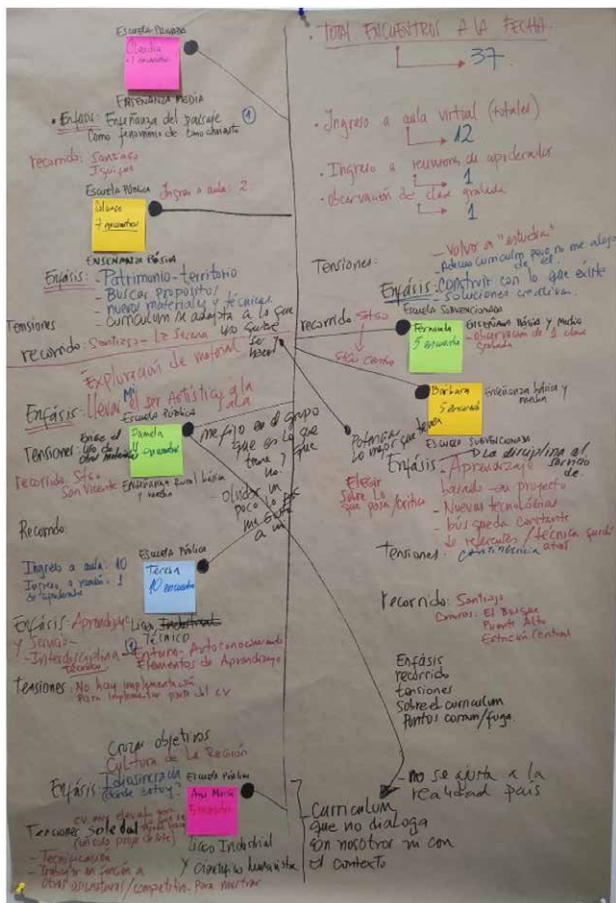 ESCUELA PRIVADA
Claudia
ENSEÑANZA MEDIA
• Enfasis: Enseñanza del paisaje 1
Como fenómeno de
recorrido: Santiago
Iquique
Escuela Pública Ingreso a aula: 2
7 encuentros
ENSEÑANZA BÁSICA
Enfásis: - Patrimonio - territorio
- Buscar propósitos
- nuevos materiales y técnicas.
- curriculum se adapta a lo que
Tensiones
recorrido: Santiago - La Serena
Exploración de material
Enfásis: Llevar Mi ser Artística a la
sala
Escuela Pública
Tensiones:
Pamela
recorrido: Stgo
San Vicente Enseñanza Rural básica
y media
me fijo en el grupo
que es lo que
tiene y que
no.
olvidar un
poco lo que
me gusta
a mi
Recorrido:
Ingreso a aula: 10
Ingreso a : 1
de apoderados
Escuela Pública
Teresa
10 encuentros
Enfásis: Aprendizaje Liceo Industrial
y Servicio - Técnico
- Interdisciplina - Entorno - Autoconocimiento
Técnica Elementos de Aprendizaje
Tensiones: No hay implementación
Para implementar parte del cv
Cruzar objetivos
Cultura de La Región
Enfásis: Idiosincracia
¿dónde estoy?
Escuela Pública
Ana María
5 encuentros
Tensiones: Soledad
- Tecnificación
- Trabajar en función a
otras asignaturas/competitiv. Para mostrar
Liceo Industrial
y Científico humanista
• TOTAL ENCUENTROS A LA FECHA
37
• Ingreso a aula virtual (totales)
12
• Ingreso a reuniones de apoderados
1
• Observación de clase grabada
1
Tensiones:
- Volvo a "estudiar"
- Adecuo curriculum pero no me alejo
de él.
Enfásis: - Construir con lo que existe
- soluciones creativas.
Escuela Subvencionada
recorrido: Stgo
Stgo Centro
Fernanda
5 encuentros
Enseñanza Básica y Media
- observación de 1 clase
grabada
Bárbara
5 encuentros
Enseñanza básica y
media
ESCUELA SUBVENCIONADA
Potenciar
lo mejor que tienen
Elegir
Sobre Lo
que pasa/crítica
La disciplina al servicio
de.
Enfásis - Aprendizaje
basado en proyecto
- Nuevas tecnologías
búsqueda constante
de referentes / técnica quedó
atrás
Tensiones: contingencia
recorrido: Santiago
Comunas: El Bosque
Puente Alto
Estación Central
Enfásis
recorrido
tensiones
sobre el curriculum
Puntos común/fuga.
- no se ajusta a la
realidad país
- Curriculum
que no dialoga
con nosotros ni con
el contexto